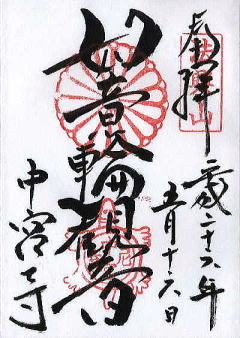 奉拝
平成二十六年
五月十六日
如意輪観音
中宮寺